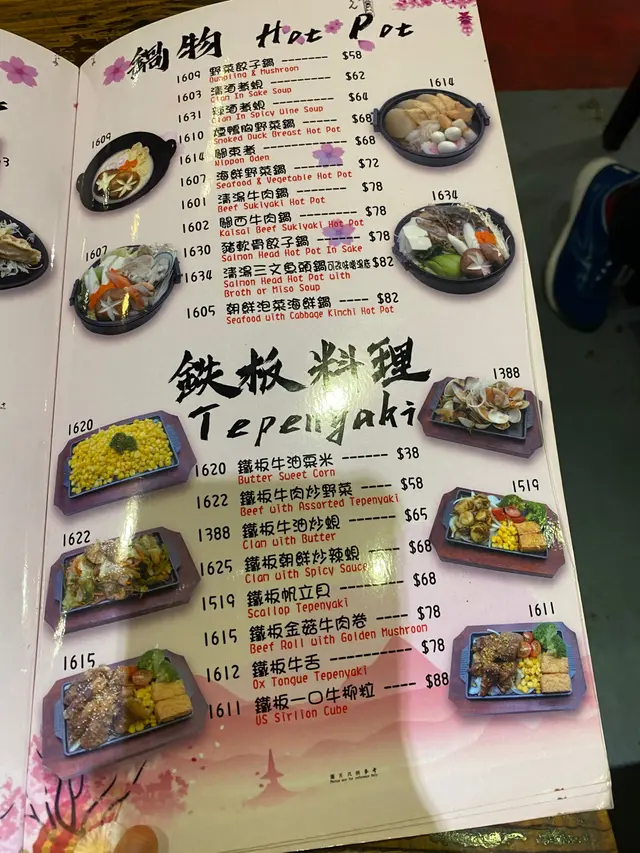 鍋物 Hot Pot
1609 野菜餃子鍋 ------- $58
Dumpling & Mushroom
1603 清酒煮蜆 ---------- $62
Clan In Sake Soup
1631 辣酒煮蜆 ---------- $64
Clan In Spicy Wine Soup
1610 煙鴨胸野菜鍋 ------ $68
Smoked Duck Breast Hot Pot
1614 關東煮 ------------ $68
Nippon Oden
1607 海鮮野菜鍋 ------- $72
Seafood & Vegetable Hot Pot
1601 清湯牛肉鍋 ------- $78
Beef Sukiyaki Hot Pot
1602 關西牛肉鍋 ------- $78
Kaisai Beef Sukiyaki Hot Pot
1630 豬軟骨餃子鍋 ----- $78
Salnon Head Hot Pot In Sake
1634 清湯三文魚頭鍋 $82
Salnon Head Hot Pot with
Broth or Miso Soup
1605 朝鮮泡菜海鮮鍋 ---- $82
Seafood with Cabbage Kinchi Hot Pot
1609
1607
1614
1634
鉄板料理
Tepenyaki
1620 鐵板牛油粟米 ------ $38
Butter Sweet Corn
1622 鐵板牛肉炒野菜 ---- $58
Beef with Assorted Tepenyaki
1388 鐵板牛油炒蜆 ------ $65
Clan with Butter
1625 鐵板朝鮮炒辣蜆 ---- $68
Clan with Spicy Sauce
1519 鐵板帆立貝 -------- $68
Scallop Tepenyaki
1615 鐵板金菇牛肉卷 ---- $78
Beef Roll with Golden Mushroom
1612 鐵板牛舌 ---------- $78
Ox Tongue Tepenyaki
1611 鐵板一口牛柳粒 ---- $88
US Sirlion Cube
1620
1622
1615
1388
1519
1611
圖片只供參考